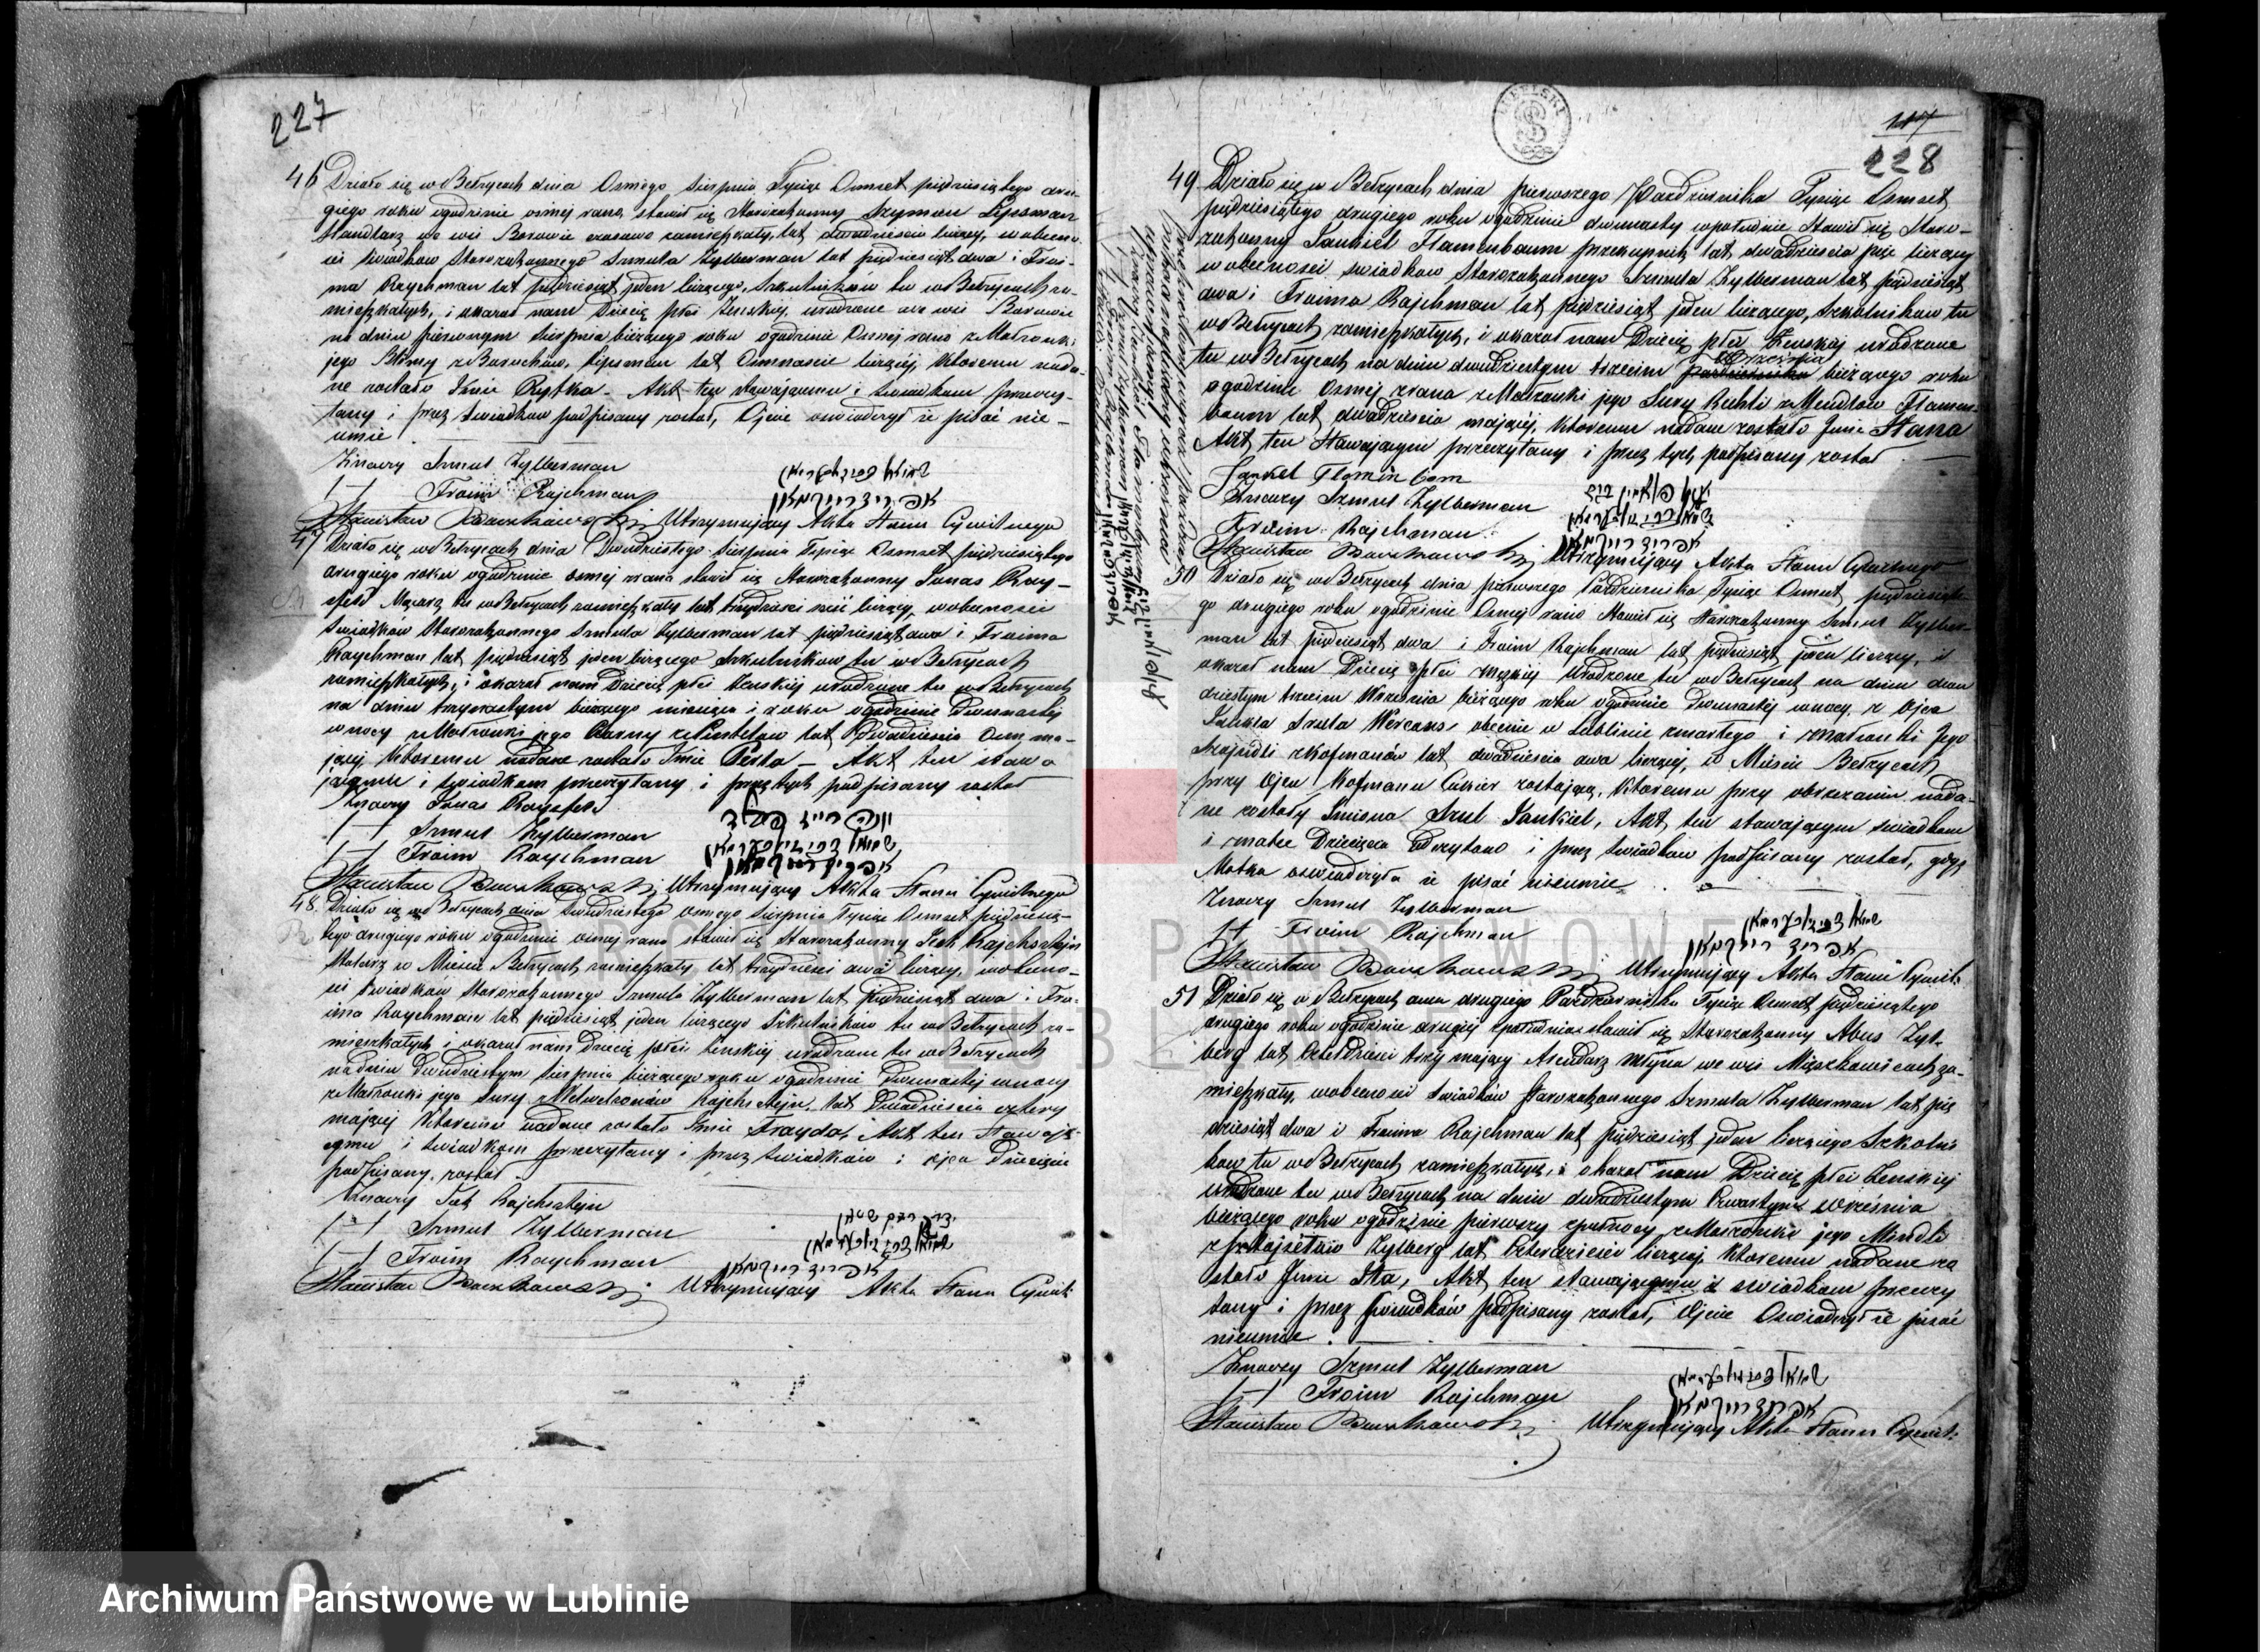 227
46 Działo się w Bełżycach dnia Osmego Sierpnia Tysiąc Osmset pięćdziesiątego dru-
giego roku o godzinie osmej rano, stawił się Starozakonny Szyman Lipsman
Handlarz we wsi Borowie czasowo zamieszkały, lat dwadzieścia liczący, w obecno-
ści Świadków Starozakonnego Szmula Zylberman lat pięćdziesiąt dwa i Froi-
ma Raychman lat pięćdziesiąt jeden liczącego, Szkolników tu w Bełżycach za-
mieszkałych, i okazał nam Dziecię płci Żeńskiej, urodzone we wsi Borowie
na dniu pierwszym Sierpnia bieżącego roku o godzinie Osmej rano z Małżonki
jego Blimy z Boruchów, Lipsman lat Osmnaście liczącej, któremu nada-
ne zostało Imię Rytka - Akt ten stawającemu i świadkom przeczy-
tany i przez świadków podpisany został, Ojciec oświadczył że pisać nie-
umie
Znaczy Szmul Zylberman
שמואל זילבערמאן
/-/ Froim Rajchman
אפרים רייכמאן
Stanisław Utrzymujący Akta Stanu Cywilnego
47 Działo się w Bełżycach dnia Dwudziestego Sierpnia Tysiąc Osmset pięćdziesiątego
drugiego roku o godzinie osmej zrana stawił się Starozakonny Ray-
tu w Bełżycach zamieszkały lat trzydzieści liczący, w obecności
Świadków Starozakonnego Szmula Zylberman lat pięćdziesiąt dwa i Froima
Raychman lat pięćdziesiąt jeden liczącego Szkolników tu w Bełżycach
zamieszkałych, i okazał nam Dziecię płci żeńskiej urodzone tu w Bełżycach
na dniu trzynastym bieżącego miesiąca i roku o godzinie Dwunastej
w nocy z Małżonki jego lat Dwadzieścia Osm ma-
jącej, któremu nadane zostało Imię Pesta - Akt ten stawa
jącemu i świadkom przeczytany i przez tych podpisany został
Znaczy
/-/ Szmul Zylberman
שמואל זילבערמאן
/-/ Froim Raychman
אפרים רייכמאן
Stanisław Utrzymujący Akta Stanu Cywilnego
48. Działo się w Bełżycach dnia Dwudziestego osmego Sierpnia Tysiąc Osmset pięćdziesią-
tego drugiego roku o godzinie osmej rano stawił się Starozakonny Rajchsztejn
w Mieście Bełżycach zamieszkały lat trzydzieści dwa liczący, w obecno-
ści świadków Starozakonnego Szmula Zylberman lat pięćdziesiąt dwa i Fro-
ima Raychman lat pięćdziesiąt jeden liczącego Szkolników tu w Bełżycach za-
mieszkałych i okazał nam Dziecię płci żeńskiej urodzone tu w Bełżycach
na dniu Dwudziestym Sierpnia bieżącego roku o godzinie Dwunastej w nocy
z Małżonki jego Sury Rajchsztejn, lat Dwadzieścia cztery
mającej któremu nadane zostało Imię Frayda, Akt ten stawają-
cemu i świadkom przeczytany i przez świadków i ojca Dziecięcia
podpisany został
Znaczy Rajchsztejn
/-/ Szmul Zylberman
שמואל זילבערמאן
/-/ Froim Raychman
אפרים רייכמאן
Stanisław Utrzymujący Akta Stanu Cywil:
LUBELSKI
117
228
49 Działo się w Bełżycach dnia pierwszego Października Tysiąc Osmset
pięćdziesiątego drugiego roku o godzinie dwunastej w południe Stawił się Staro-
zakonny Jankiel Flamenbaum przekupnik lat dwadzieścia liczący
w obecności świadków Starozakonnego Szmula Zylberman lat pięćdziesiąt
dwa i Froima Rajchman lat pięćdziesiąt jeden liczącego, Szkolników tu
w Bełżycach zamieszkałych, i okazał nam Dziecię płci Żeńskiej urodzone
tu w Bełżycach na dniu dwudziestym trzecim Września bieżącego roku
o godzinie Osmej zrana z Małżonki jego Sury Ruchli z Mendlów Flamen-
baum lat dwadzieścia mającej, któremu nadane zostało Imie Hana
Akt ten Stawającym przeczytany i przez tych podpisany został
Jankel
Znaczy Szmul Zylberman
שמואל זילבערמאן
Froim Rajchman
אפרים רייכמאן
Stanisław Utrzymujący Akta Stanu Cywilnego
50 Działo się w Bełżycach dnia pierwszego Października Tysiąc Osmset pięćdziesiąte-
go drugiego roku o godzinie Osmej rano Stawił się Starozakonny Szmul Zylber-
man lat pięćdziesiąt dwa i Froim Rajchman lat pięćdziesiąt jeden liczący, i
okazał nam Dziecię płci męzkiej Urodzone tu w Bełżycach na dniu dwu
dziestym trzecim Września bieżącego roku o godzinie Dwunastej w nocy, z Ojca
obecnie w Lublinie zmarłego i małżonki Jego
z Kofmanów lat dwadzieścia dwa liczącej, w Mieście Bełżycach
przy Ojcu Kofmanu Cukier zostającej, któremu przy obrzezaniu nada-
ne zostały Imiona Srul Jankiel, Akt ten stawającym świadkom
i matce Dziecięcia Odczytano i przez świadków podpisany został, gdyż
Matka oświadczyła że pisać nieumie
Znaczy Szmul Zylberman
שמואל זילבערמאן
/-/ Froim Rajchman
אפרים רייכמאן
Stanisław Utrzymujący Akta Stanu Cywil:
51 Działo się w Bełżycach dnia drugiego Października Tysiąc Osmset pięćdziesiątego
drugiego roku o godzinie drugiej z południa stawił się Starozakonny Abus Zyl-
berg lat czterdzieści trzy mający Arendarz Młyna we wsi za-
mieszkały, w obecności świadków Starozakonnego Szmula Zylberman lat pię
dziesiąt dwa i Froima Rajchman lat pięćdziesiąt jeden liczącego Szkolni
ków tu w Bełżycach zamieszkałych, i okazał nam Dziecię płci Żeńskiej
Urodzone tu w Bełżycach na dniu dwudziestym Czwartym września
bieżącego roku o godzinie pierwszy z północy z Małżonki jego Mindli
Zylberg lat Czterdzieści liczącej, któremu nadane zo
stało Imie Ita, Akt ten stawającemu i świadkom przeczy
tany i przez świadków podpisany został, Ojciec Oświadczył że pisać
nieumie.
Znaczy Szmul Zylberman
שמואל זילבערמאן
/-/ Froim Rajchman
אפרים רייכמאן
Stanisław Utrzymujący Akta Stanu Cywil:
Archiwum Państwowe w Lublinie